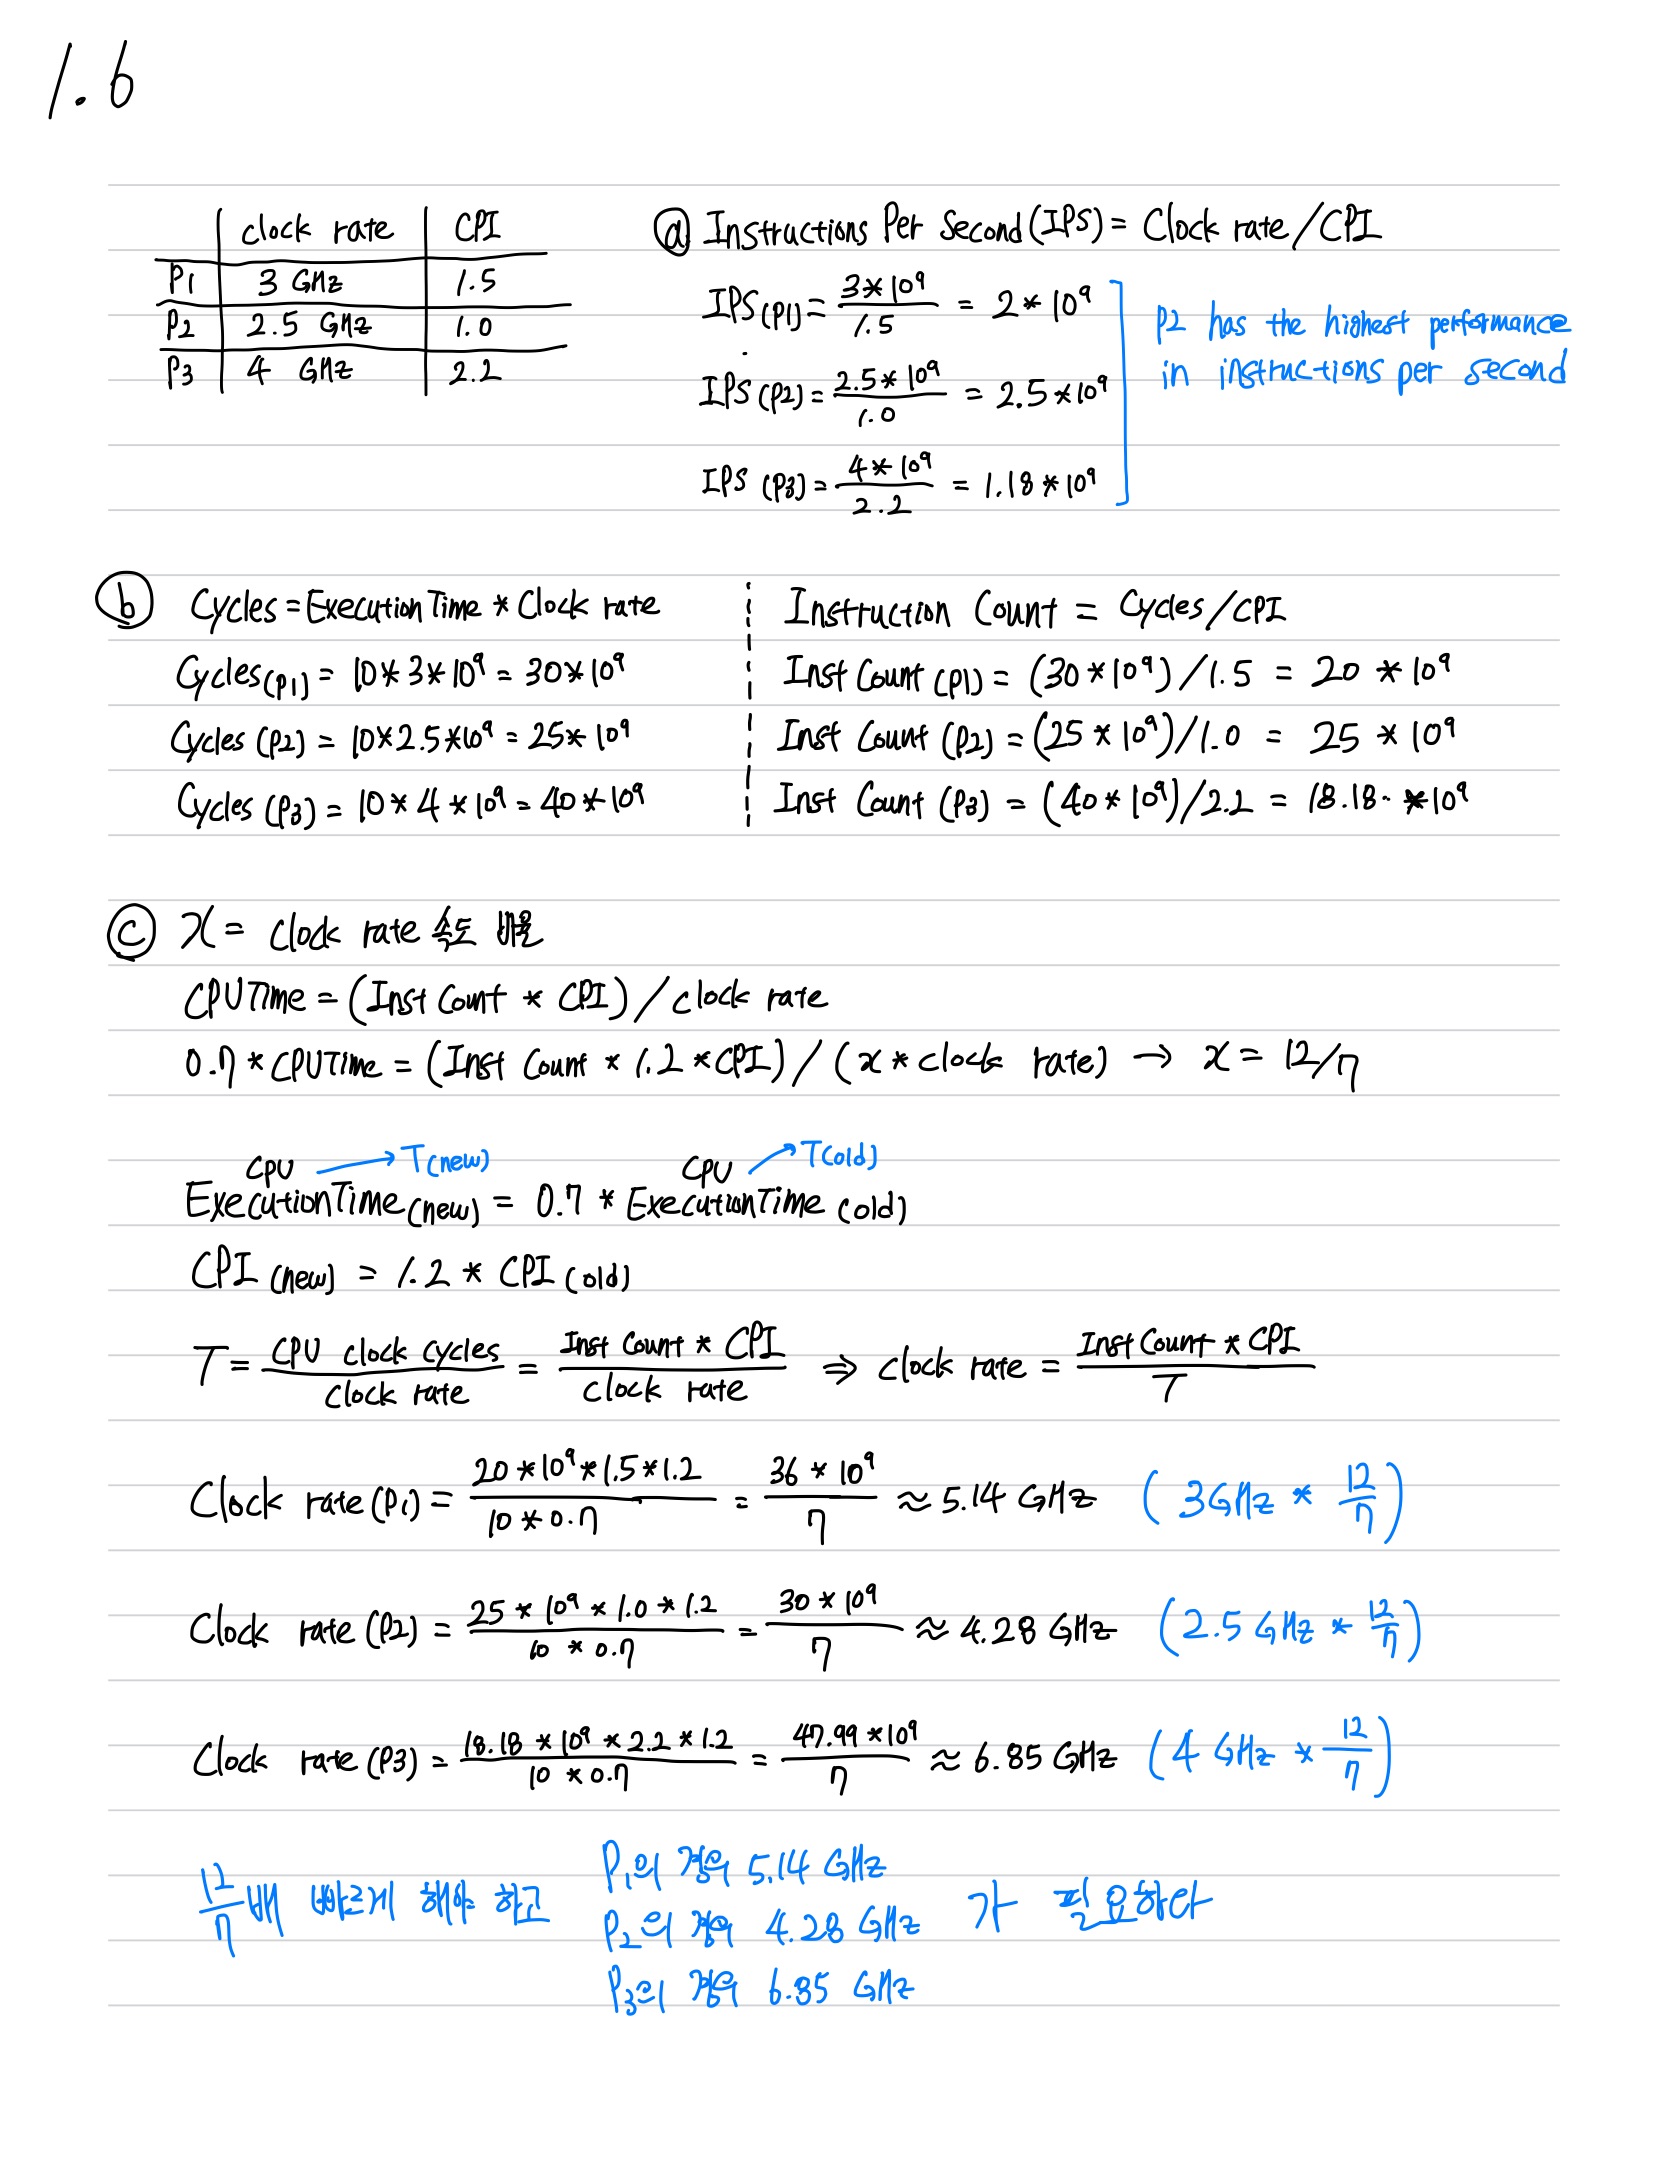 1.6
clock rate CPI
P1 3 GHz 1.5
P2 2.5 GHz 1.0
P3 4 GHz 2.2
ⓐ Instructions Per Second (IPS) = Clock rate / CPI
IPS(P1) = 3*10⁹ / 1.5 = 2 * 10⁹
IPS(P2) = 2.5 * 10⁹ / 1.0 = 2.5 * 10⁹
IPS(P3) = 4 * 10⁹ / 2.2 = 1.18 * 10⁹
P2 has the highest performance
in instructions per second
ⓑ Cycles = Execution Time * Clock rate
Cycles(P1) = 10 * 3 * 10⁹ = 30 * 10⁹
Cycles(P2) = 10 * 2.5 * 10⁹ = 25 * 10⁹
Cycles(P3) = 10 * 4 * 10⁹ = 40 * 10⁹
Instruction Count = Cycles / CPI
Inst Count(P1) = (30 * 10⁹) / 1.5 = 20 * 10⁹
Inst Count(P2) = (25 * 10⁹) / 1.0 = 25 * 10⁹
Inst Count(P3) = (40 * 10⁹) / 2.2 = 18.18 * 10⁹
ⓒ x = clock rate 속도 배율
CPU Time = (Inst Count * CPI) / clock rate
0.7 * CPU Time = (Inst Count * 1.2 * CPI) / (x * clock rate) → x = 12/7
CPU → T(new) CPU → T(old)
Execution Time(new) = 0.7 * Execution Time(old)
CPI(new) = 1.2 * CPI(old)
T = CPU clock cycles / clock rate = Inst Count * CPI / clock rate ⇒ clock rate = Inst Count * CPI / T
Clock rate(P1) = 20 * 10⁹ * 1.5 * 1.2 / 10 * 0.7 = 36 * 10⁹ / 7 ≈ 5.14 GHz (3 GHz * 12/7)
Clock rate(P2) = 25 * 10⁹ * 1.0 * 1.2 / 10 * 0.7 = 30 * 10⁹ / 7 ≈ 4.28 GHz (2.5 GHz * 12/7)
Clock rate(P3) = 18.18 * 10⁹ * 2.2 * 1.2 / 10 * 0.7 = 47.99 * 10⁹ / 7 ≈ 6.85 GHz (4 GHz * 12/7)
12/7 배 빠르게 해야 하고
P1의 경우 5.14 GHz
P2의 경우 4.28 GHz 가 필요하다
P3의 경우 6.85 GHz